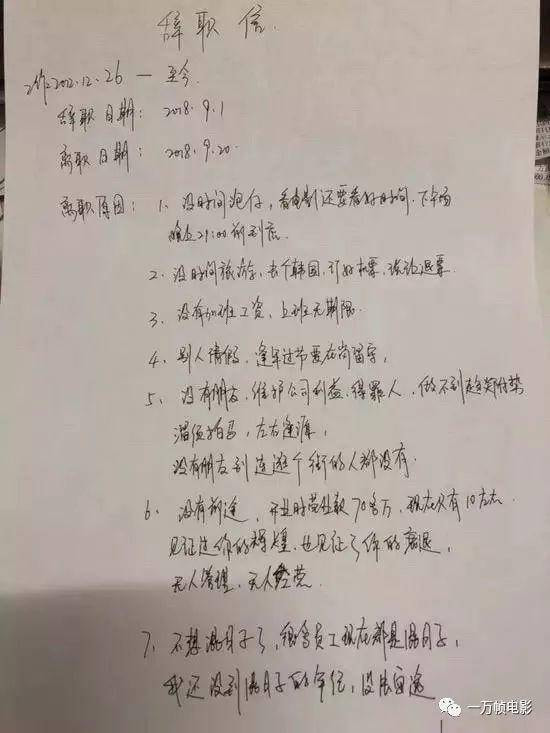 辞职信
工作2012.12.26 — 至今
辞职日期: 2018.9.1
离职日期: 2018.9.20.
离职原因: 1、没时间泡仔,看电影还要看好时间,下午场
晚上21:00前到店.
2、没时间旅游,去个韩国,订好机票,谈论退票
3、没有加班工资,上班无期限.
4、别人请假,逢年过节要在岗留守,
5、没有朋友,维护公司利益,得罪人,做不到趋炎附势
溜须拍马,左右逢源,
没有朋友到连逛个街的人都没有.
6、没有前途,开业时营业款70多万,现在只有10左右
见证过你的辉煌,也见证了你的衰退,
无人管理,无人经营.
7、不想混日子了,很多员工现在都是混日子,
我还没到混日子的年纪,没钱
一万帧电影